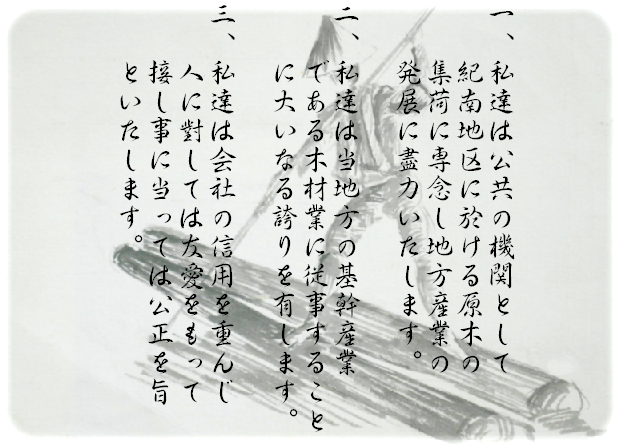 一、私達は公共の機関として
紀南地区に於ける原木の
集荷に専念し地方産業の
発展に盡力いたします。
二、私達は当地方の基幹産業
である木材業に従事すること
に大いなる誇りを有します。
三、私達は会社の信用を重んじ
人に對しては友愛をもって
接し事に当っては公正を旨
といたします。